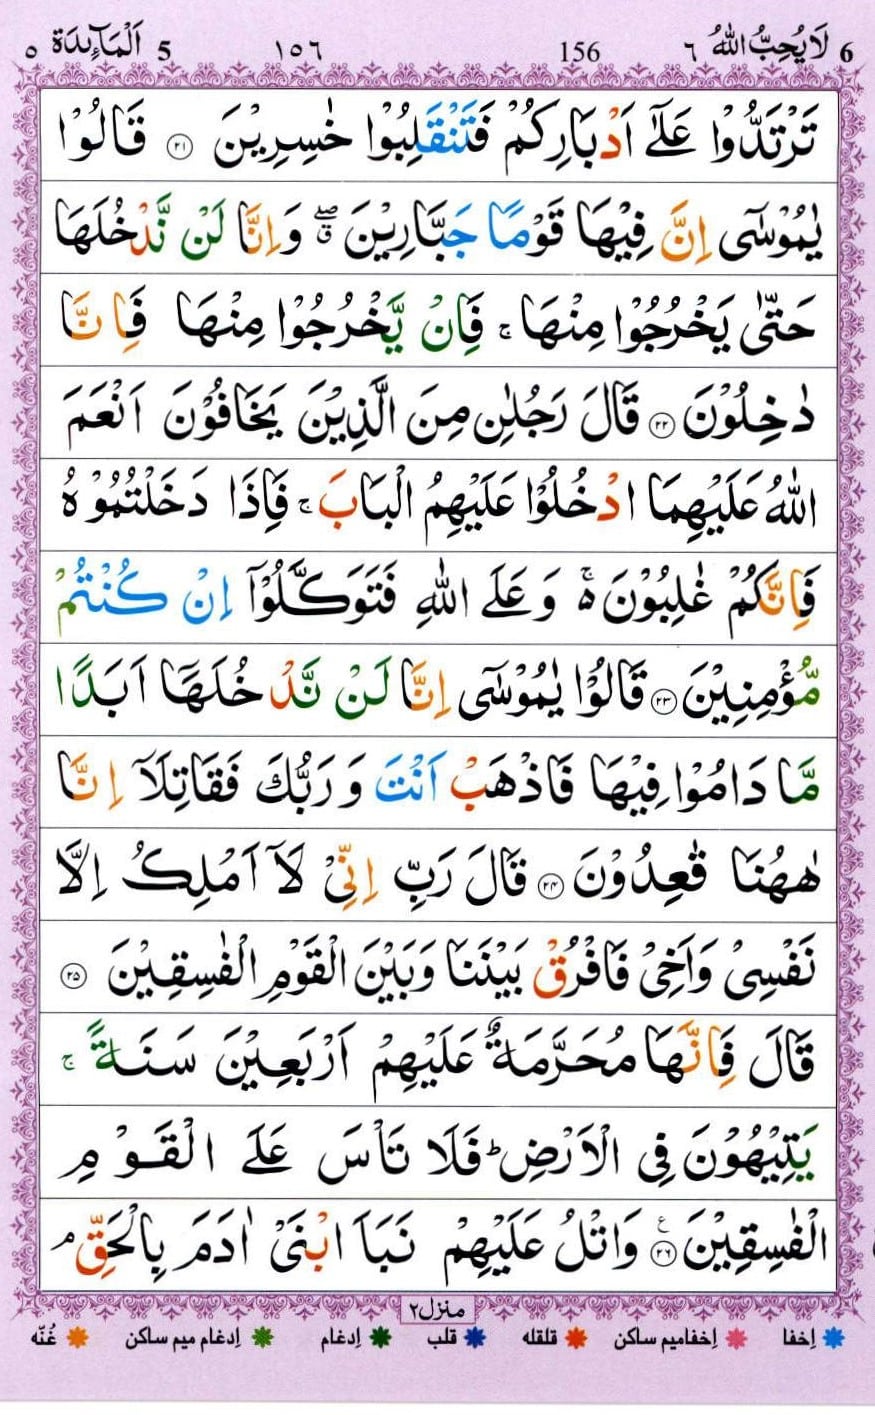 6 لَا يُحِبُّ اللّٰهُ ٦ 156 ١٥٦ 5 اَلْمَآئِدَة ٥
تَرْتَدُّوْا عَلٰٓى اَدْبَارِكُمْ فَتَنْقَلِبُوْا خٰسِرِيْنَ ﴿۲۱﴾ قَالُوْا
يٰمُوْسٰٓى اِنَّ فِيْهَا قَوْمًا جَبَّارِيْنَ ۖۗ وَاِنَّا لَنْ نَّدْخُلَهَا
حَتّٰى يَخْرُجُوْا مِنْهَا ۚ فَاِنْ يَّخْرُجُوْا مِنْهَا فَاِنَّا
دٰخِلُوْنَ ﴿۲۲﴾ قَالَ رَجُلٰنِ مِنَ الَّذِيْنَ يَخَافُوْنَ اَنْعَمَ
اللّٰهُ عَلَيْهِمَا ادْخُلُوْا عَلَيْهِمُ الْبَابَ ۚ فَاِذَا دَخَلْتُمُوْهُ
فَاِنَّكُمْ غٰلِبُوْنَ ەۚ وَعَلَى اللّٰهِ فَتَوَكَّلُوْٓا اِنْ كُنْتُمْ
مُّؤْمِنِيْنَ ﴿۲۳﴾ قَالُوْا يٰمُوْسٰٓى اِنَّا لَنْ نَّدْخُلَهَآ اَبَدًا
مَّا دَامُوْا فِيْهَا فَاذْهَبْ اَنْتَ وَرَبُّكَ فَقَاتِلَآ اِنَّا
هٰهُنَا قٰعِدُوْنَ ﴿۲۴﴾ قَالَ رَبِّ اِنِّيْ لَآ اَمْلِكُ اِلَّا
نَفْسِيْ وَاَخِيْ فَافْرُقْ بَيْنَنَا وَبَيْنَ الْقَوْمِ الْفٰسِقِيْنَ ﴿۲۵﴾
قَالَ فَاِنَّهَا مُحَرَّمَةٌ عَلَيْهِمْ اَرْبَعِيْنَ سَنَةً ۚ
يَتِيْهُوْنَ فِى الْاَرْضِ ؕ فَلَا تَاْسَ عَلَى الْقَوْمِ
الْفٰسِقِيْنَ ﴿۲۶﴾ ع وَاتْلُ عَلَيْهِمْ نَبَاَ ابْنَيْ اٰدَمَ بِالْحَقِّ ۘ
منزل ۲
اِخفا اِخفامیم ساکن قلقله قلب اِدغام اِدغام میم ساکن غُنّه